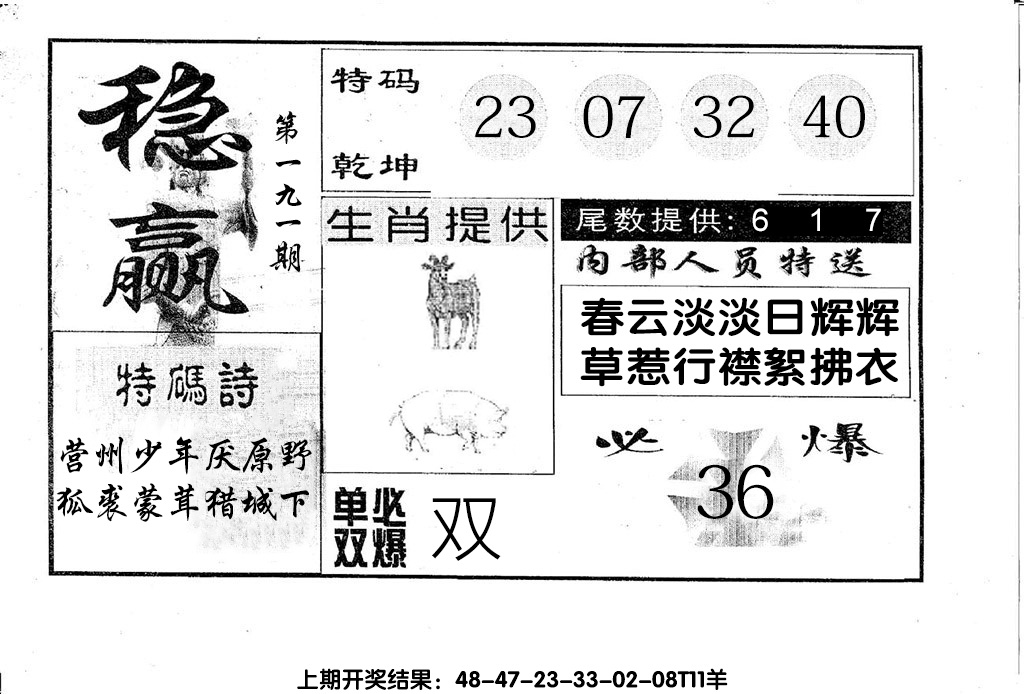 稳赢
第一九一期
特码
乾坤
23 07 32 40
生肖提供
尾数提供: 6 1 7
内部人员特送
春云淡淡日辉辉
草惹行襟絮拂衣
特碼詩
营州少年厌原野
狐裘蒙茸猎城下
单双必爆
双
必爆
36
上期开奖结果：48-47-23-33-02-08T11羊